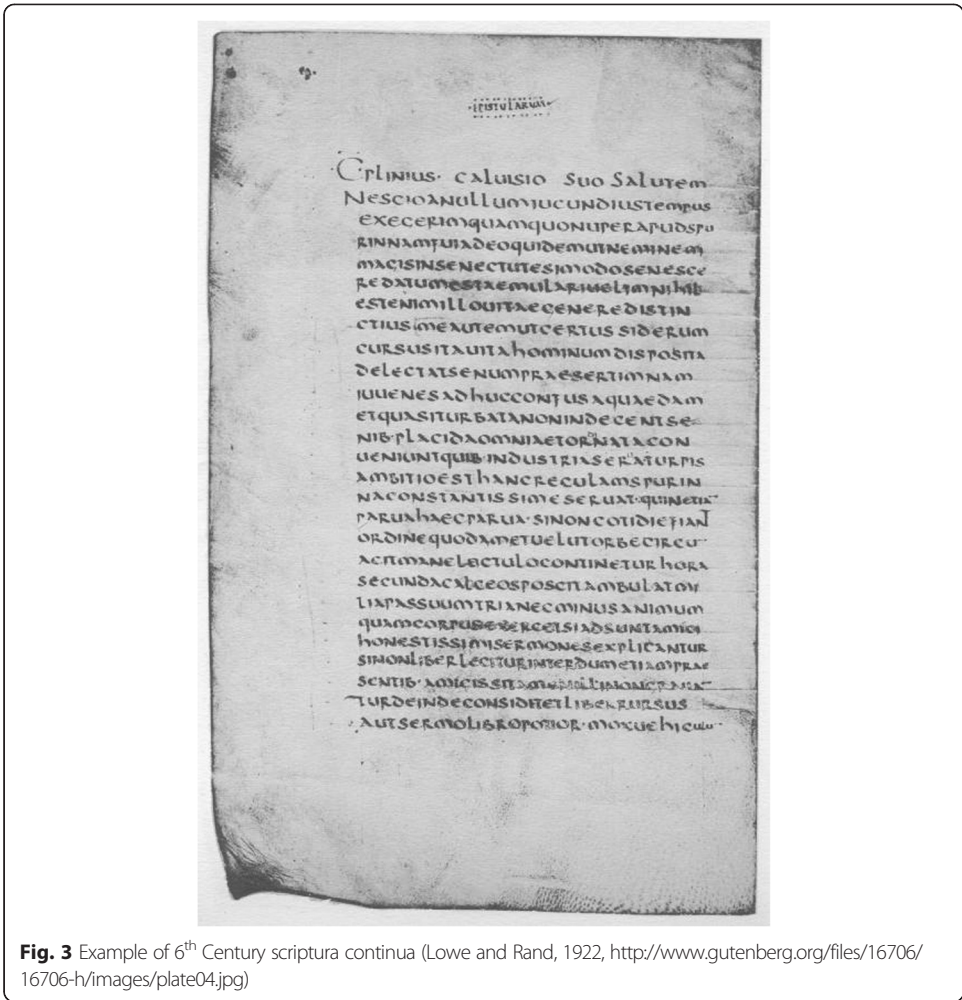 ·EPISTULARUM·
C·PLINIUS· CALUISIO SUO SALUTEM
NESCIOANULLUMIUCUNDIUSTEMPUS
EXEGERIMQUAMQUONUPERAPUDSPU
RINNAMFUIADEOQUIDEMUTNEMINEM
MAGISINSENECTUTESIMODOSENESCE
REDATUMESTAEMULARIUELIMNIHIL
ESTENIMILLOUITAEGENEREDISTIN
CTIUSMEAUTEMUTCERTUSSIDERUM
CURSUSITAUITAHOMINUMDISPOSITA
DELECTATSENUMPRAESERTIMNAM
IUUENESADHUCCONFUSAQUAEDAM
ETQUASITURBATANONINDECENTSE
NIB·PLACIDAOMNIAETORNATACON
UENIUNTQUIB·INDUSTRIASERATURPIS
AMBITIOESTHANCREGULAMSPURIN
NACONSTANTISSIMESERUAT·QUINETIA
PARUAHAECPARUA·SINONCOTIDIEFIANT
ORDINEQUODAMETUELUTORBECIRCU
AGITMANELECTULOCONTINETURHORA
SECUNDACALCEOSPOSCITAMBULATMI
LIAPASSUUMTRIANECMINUSANIMUM
QUAMCORPUSEXERCETSIADSUNTAMICI
HONESTISSIMISERMONESEXPLICANTUR
SINONLIBERLEGITURINTERDUMETIAMPRAE
SENTIB·AMICISSITAMENILLINONGRAUA
TURDEINDECONSIDITETLIBERRURSUS
AUTSERMOLIBROPOTIOR·MOXUEHICULU
Fig. 3 Example of 6th Century scriptura continua (Lowe and Rand, 1922, http://www.gutenberg.org/files/16706/
16706-h/images/plate04.jpg)